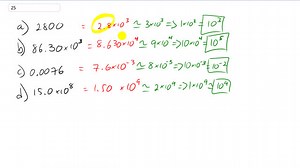 25
a) 2800 = 2.8×10³ ≃ 3×10³ => 1×10³ = 10³
b) 86.30×10³ = 8.630×10⁴ ≃ 9×10⁴ => 10×10⁴ = 10⁵
c) 0.0076 = 7.6×10⁻³ ≃ 8×10⁻³ => 10×10⁻³ = 10⁻²
d) 15.0×10⁸ = 1.50 ×10⁹ ≃ 2×10⁹ => 1×10⁹ = 10⁹